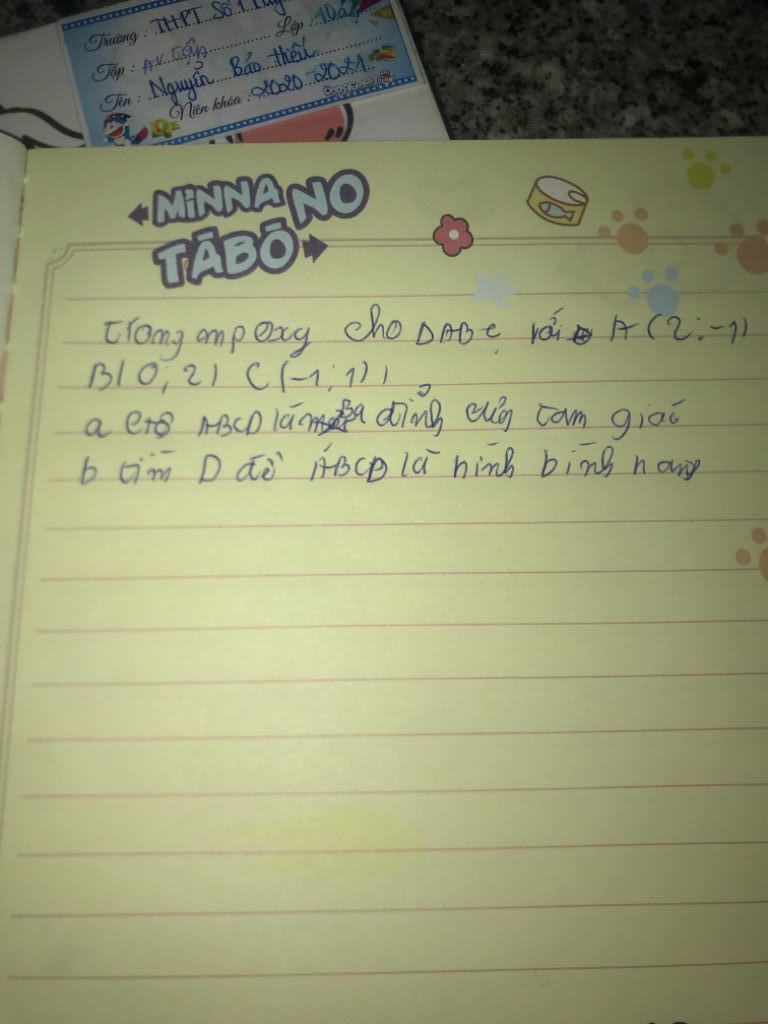 Trường : THPT Số 1
Lớp : 10a
Tập : AV. Tập
Tên : Nguyễn Bảo Thiếu
Niên khóa : 2020-2021
MINNA NO
TĀBŌ
trong mp oxy cho DABC với A (2;-1)
B( 0; 2) C(-1; 1) )
a cto ABCD là ba đỉnh của tam giác
b tìm D để ABCB là hình bình hang